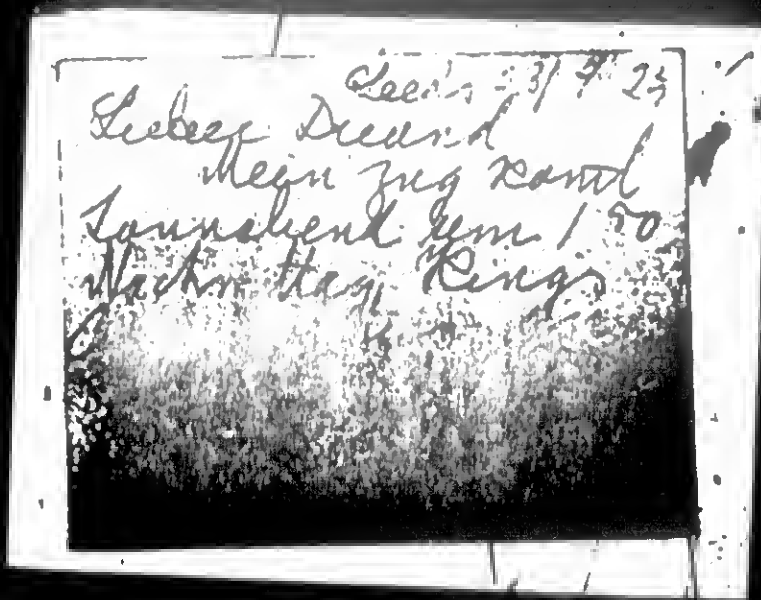 Leeds 23/7 25
Lieber Freund
Mein zug komt
Sonnabend um 1 50
Nachm ttag, Kings